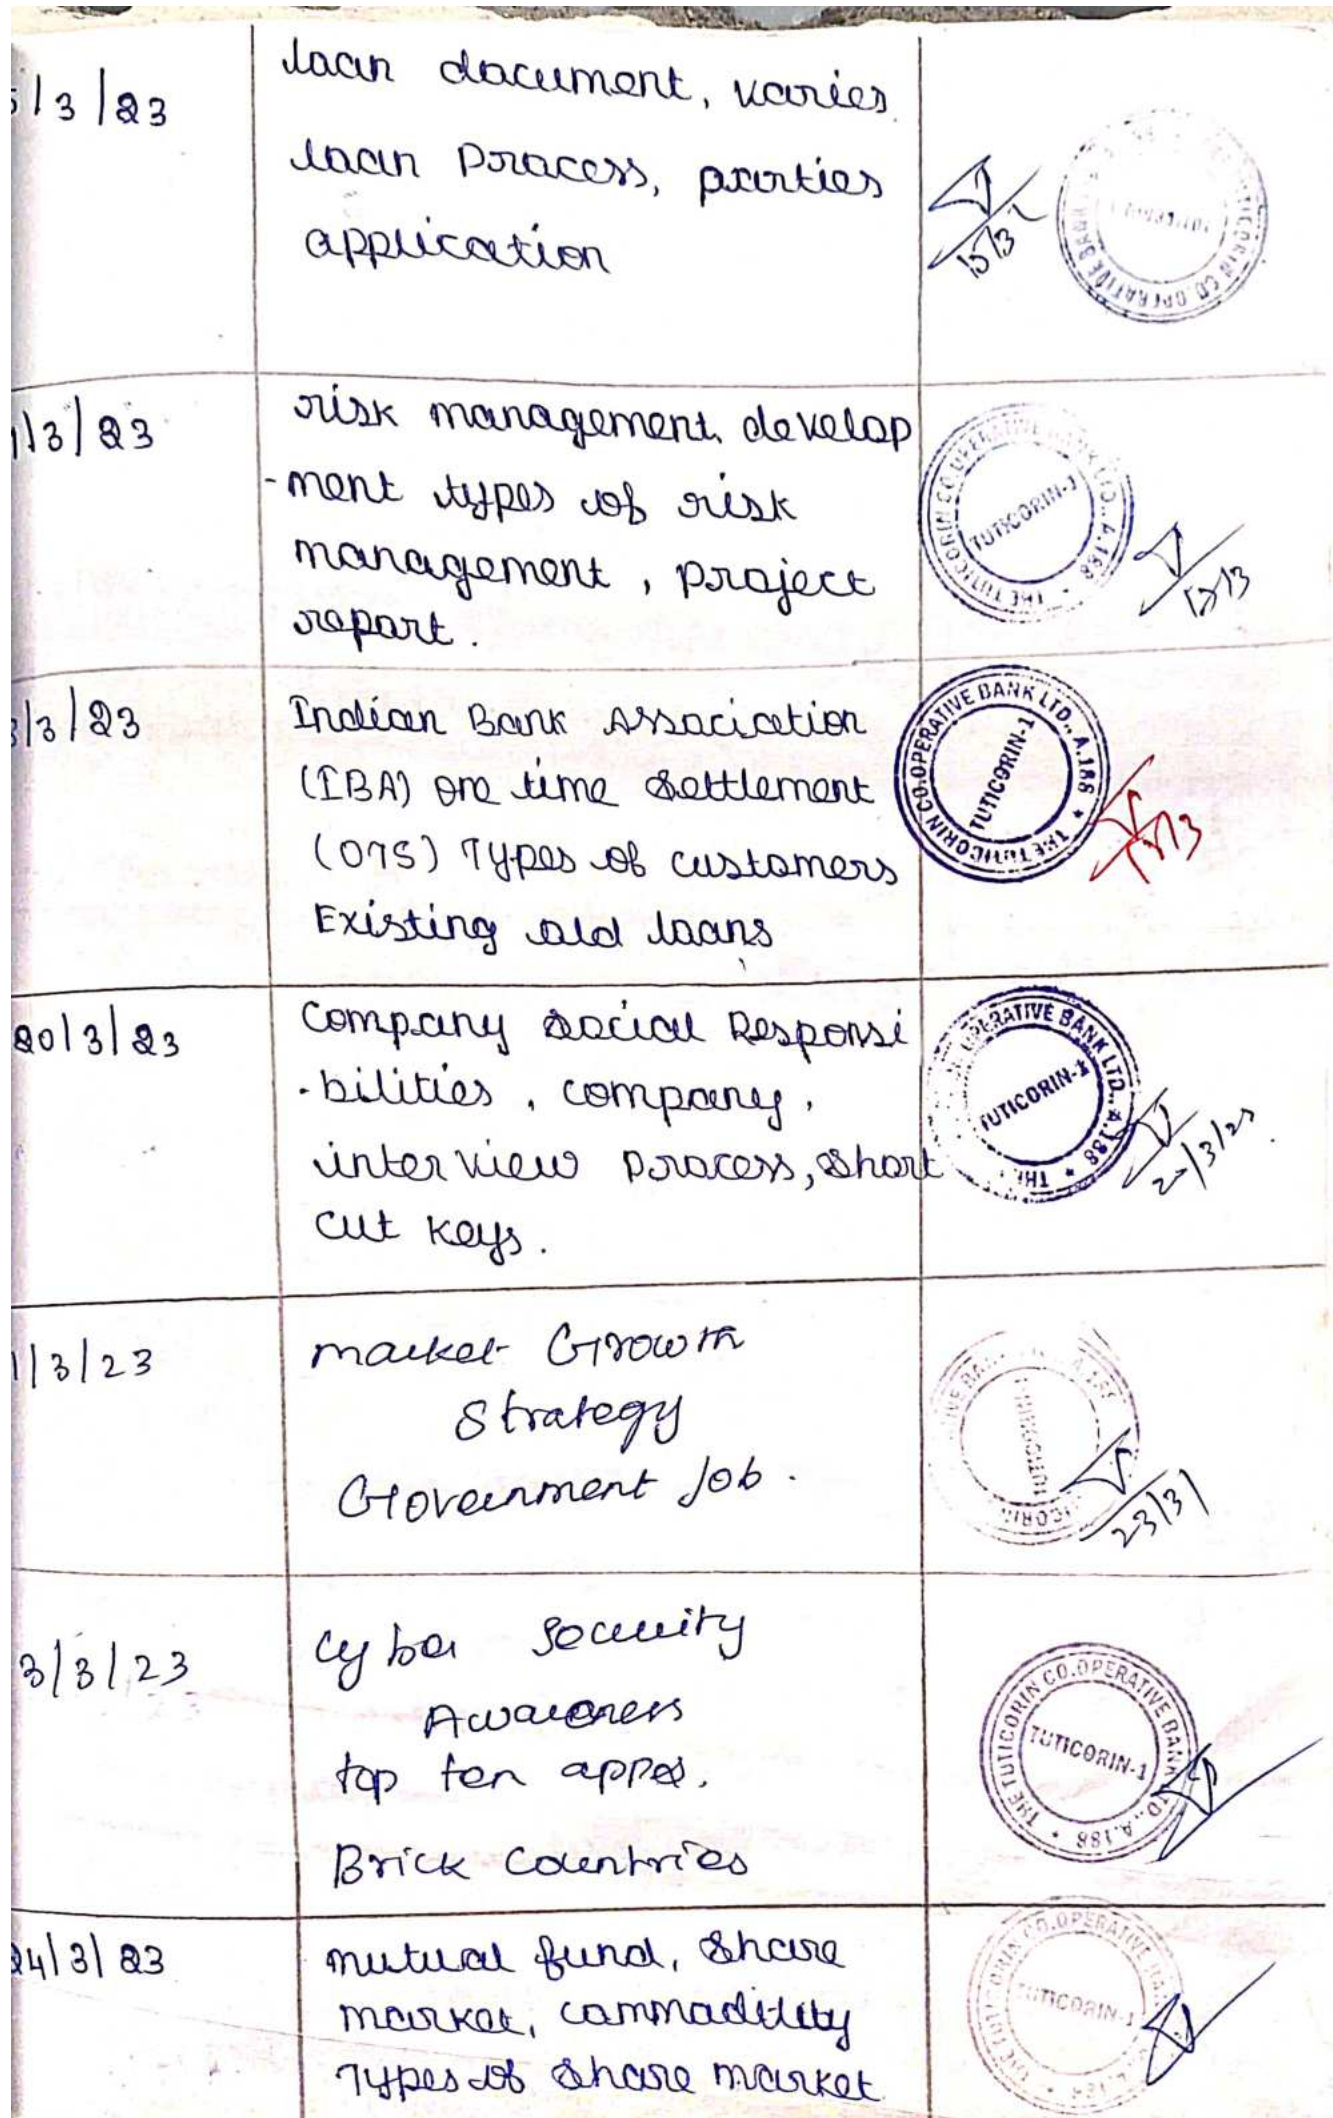 /3/23
loan document, varies
loan process, parties
application
15/3
/3/23
risk management, develop
-ment types of risk
management, project
report.
THE TUTICORIN CO.OPERATIVE BANK LTD., A.188
TUTICORIN-1
/3/23
Indian Bank Association
(IBA) one time settlement
(OTS) Types of customers
Existing old loans
THE TUTICORIN CO.OPERATIVE BANK LTD., A.188
TUTICORIN-1
20/3/23
Company social Responsi
-bilities, company,
interview process, short
cut keys.
OPERATIVE BANK LTD., A.188
TUTICORIN-1
20/3/23
1/3/23
market Growth
Strategy
Government Job.
23/3
3/3/23
Cyber Security
Awareness
top ten appes.
Brick Countries
THE TUTICORIN CO.OPERATIVE BANK LTD., A.188
TUTICORIN-1
24/3/23
mutual fund, share
market, commadility
Types of share market
TUTICORIN-1